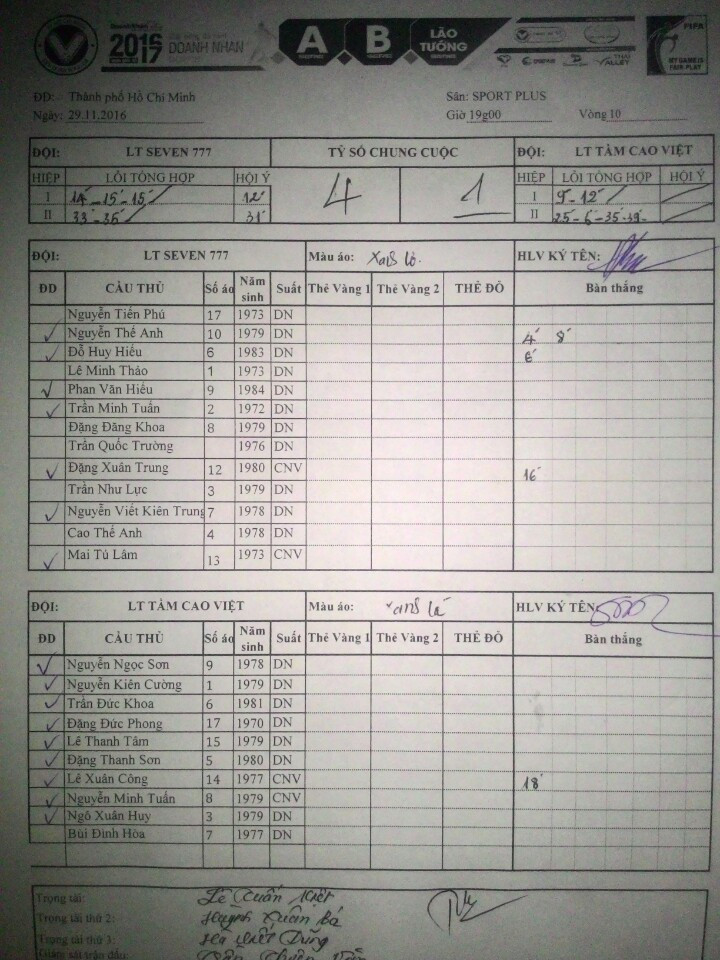 2016 17 DOANH NHAN A B LÃO TƯỚNG FIFA
MY GAME IS FAIR PLAY
ĐĐ: Thành phố Hồ Chí Minh Sân: SPORT PLUS
Ngày: 29.11.2016 Giờ 19g00 Vòng 10
ĐỘI: LT SEVEN 777 TỶ SỐ CHUNG CUỘC ĐỘI: LT TÂM CAO VIỆT
HIỆP LỖI TỔNG HỢP HỘI Ý 4 1 HIỆP LỖI TỔNG HỢP HỘI Ý
I 14' 15' 15' 12' I 9' 12'
II 33' 36' 31' II
ĐỘI: LT SEVEN 777 Màu áo: HLV KÝ TÊN:
ĐD CẦU THỦ Số áo Năm sinh Suất Thẻ Vàng 1 Thẻ Vàng 2 THẺ ĐỎ Bàn thắng
Nguyễn Tiến Phú 17 1973 DN
✓ Nguyễn Thế Anh 10 1979 DN 4' 8'
✓ Đỗ Huy Hiếu 6 1983 DN 6'
Lê Minh Thảo 1 1973 DN
✓ Phan Văn Hiếu 9 1984 DN
✓ Trần Minh Tuấn 2 1972 DN
Đặng Đăng Khoa 8 1979 DN
Trần Quốc Trường 1976 DN
✓ Đặng Xuân Trung 12 1980 CNV 16'
Trần Như Lực 3 1979 DN
✓ Nguyễn Viết Kiên Trung 7 1978 DN
Cao Thế Anh 4 1978 DN
✓ Mai Tú Lâm 13 1973 CNV
ĐỘI: LT TÂM CAO VIỆT Màu áo: xanh lá HLV KÝ TÊN:
ĐD CẦU THỦ Số áo Năm sinh Suất Thẻ Vàng 1 Thẻ Vàng 2 THẺ ĐỎ Bàn thắng
✓ Nguyễn Ngọc Sơn 9 1978 DN
✓ Nguyễn Kiên Cường 1 1979 DN
✓ Trần Đức Khoa 6 1981 DN
✓ Đặng Đức Phong 17 1970 DN
✓ Lê Thanh Tâm 15 1979 DN
✓ Đặng Thanh Sơn 5 1980 DN
✓ Lê Xuân Công 14 1977 CNV 18'
✓ Nguyễn Minh Tuấn 8 1979 CNV
✓ Ngô Xuân Huy 3 1979 DN
Bùi Đình Hòa 7 1977 DN
Trọng tài: Lê Xuân
Trọng tài thứ 2: Huỳnh Xuân Bá
Trọng tài thứ 3: Hà Viết Dũng
Giám sát trận đấu: